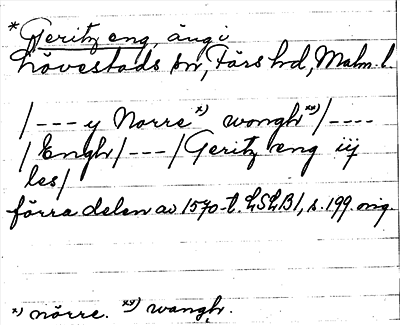 *Geritz eng, äng i
Lövestads sn, Färs hd, Malm. l.
/--- y Norre x) wongh xx)/----
/Engh/---/Geritz eng iij
les/
förra delen av 1570-t. LSLB1, s. 199. orig.
x) nörre. xx) wangh.